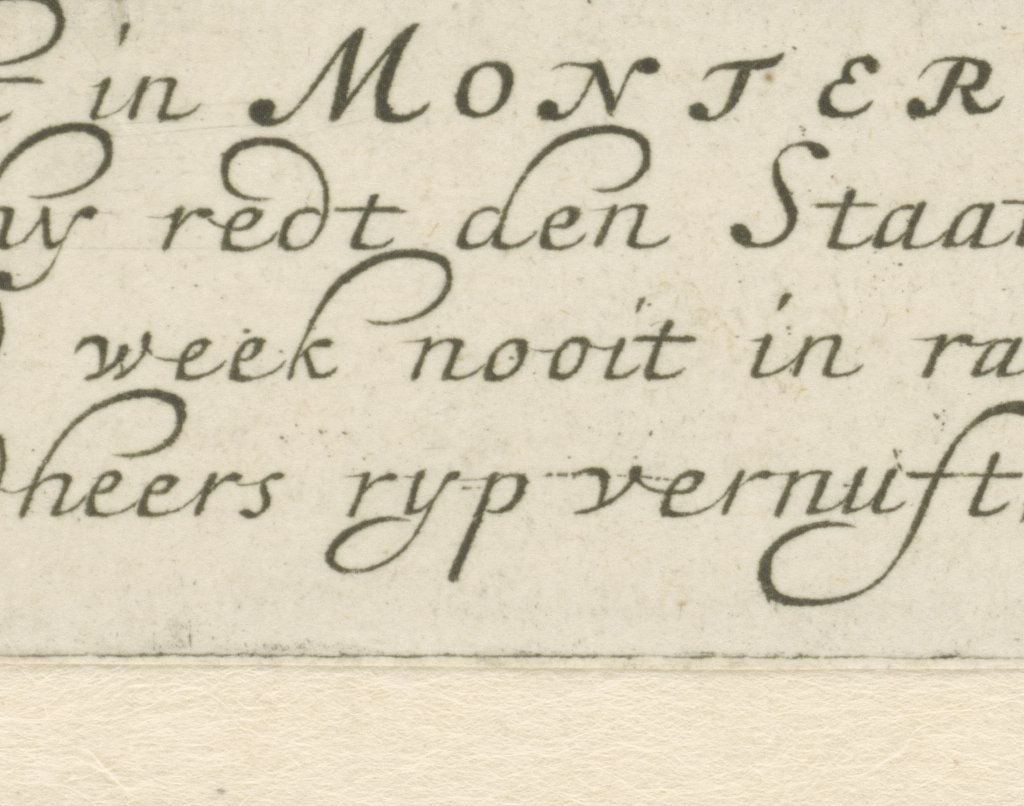 in MONTER
hy redt den Staat
week nooit in ra
heers ryp vernuft